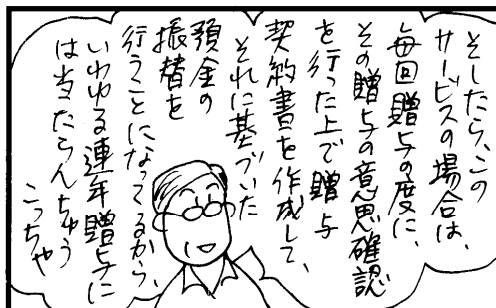 そしたら、この
サービスの場合は、
毎回贈与の度に、
その贈与の意思確認
を行った上で贈与
契約書を作成して、
それに基づいた
預金の
振替を
行うことになってるから、
いわゆる連年贈与に
は当たらんちゅう
こっちゃ